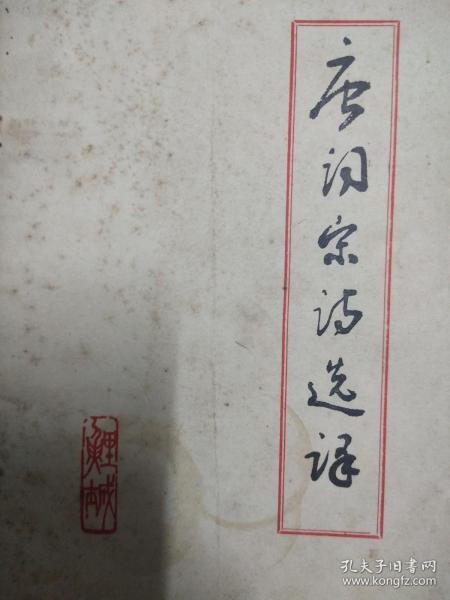 唐词宋诗选译
孔夫子旧书网
www.kongfz.com